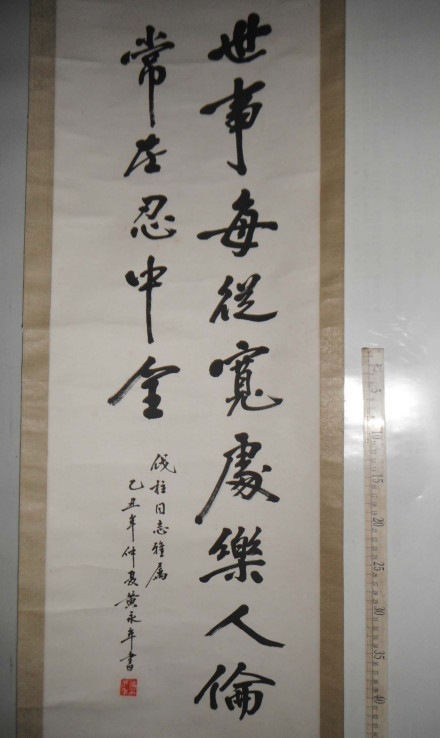 世事每從寬處樂人倫
常在忍中全
成柱同志雅属
乙丑年仲夏黄永年書
5
10
15
20
25
30
35
40